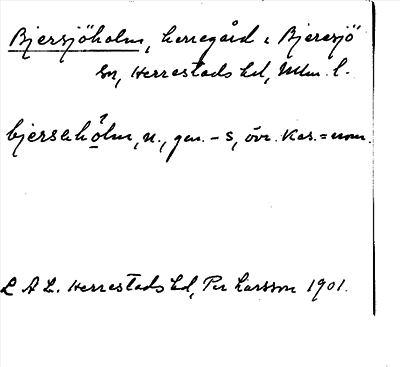 Bjersjöholm, herregård i Bjeresjö
sn, Herrestads hd, Mlm. l.
bjersəhòlm, n., gen. -s, övr. kas. = nom.
L A L. Herrestads hd, Per Larsson 1901.